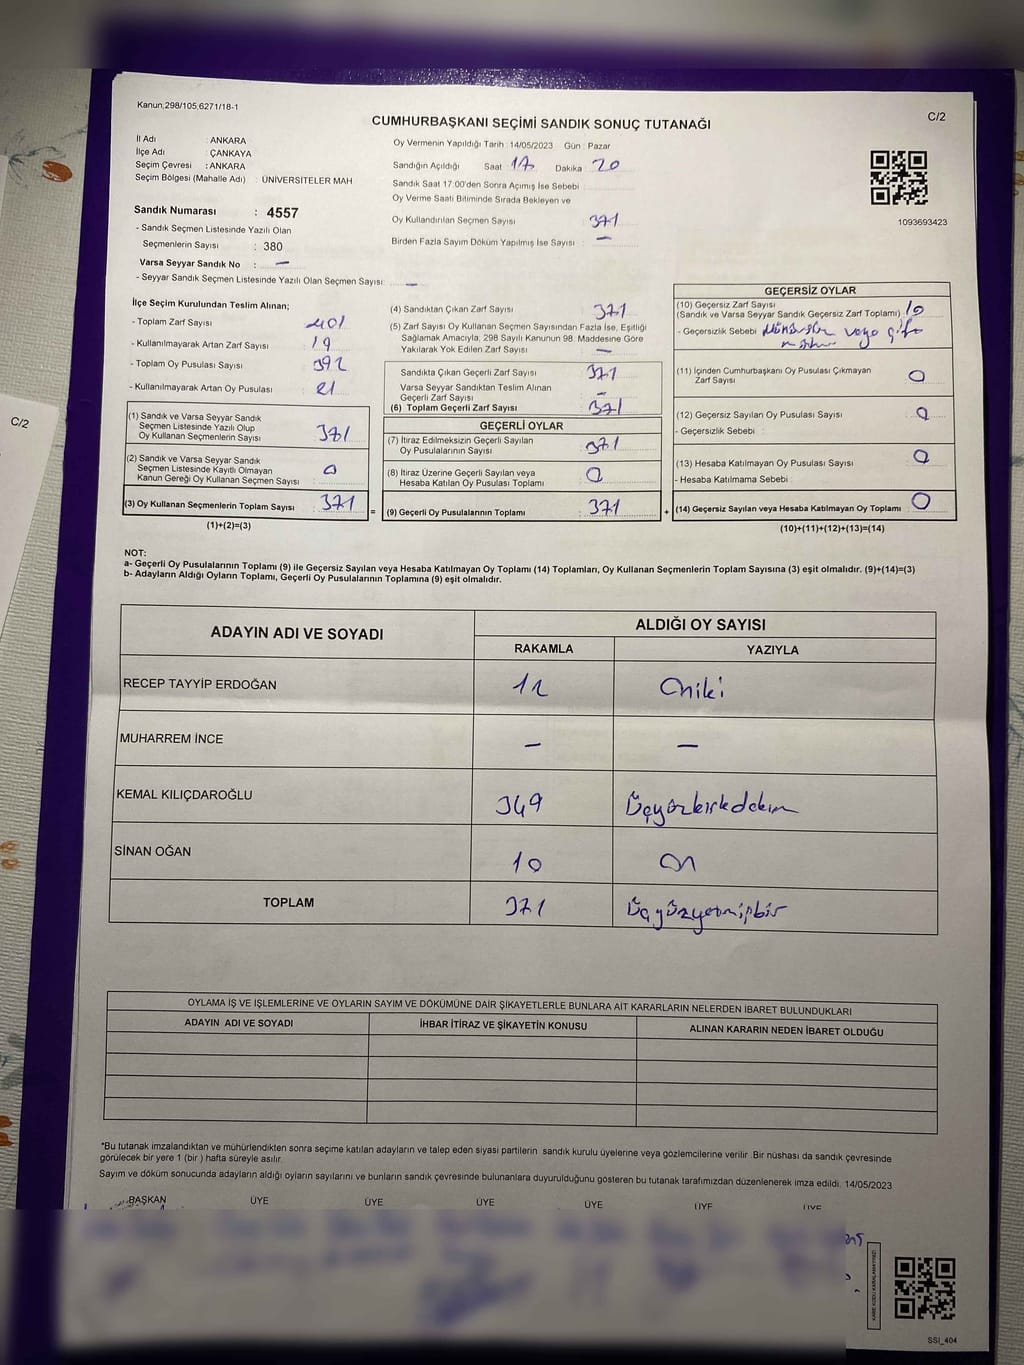 Kanun,298/105,6271/18-1
C/2
CUMHURBAŞKANI SEÇİMİ SANDIK SONUÇ TUTANAĞI
İl Adı : ANKARA
İlçe Adı : ÇANKAYA
Seçim Çevresi : ANKARA
Seçim Bölgesi (Mahalle Adı) : ÜNİVERSİTELER MAH
Oy Vermenin Yapıldığı Tarih : 14/05/2023 Gün : Pazar
Sandığın Açıldığı Saat 17 Dakika 20
Sandık Saat 17:00'den Sonra Açımış İse Sebebi
Oy Verme Saati Bitiminde Sırada Bekleyen ve
Oy Kullandırılan Seçmen Sayısı : 371
Birden Fazla Sayım Döküm Yapılmış İse Sayısı : –
1093693423
Sandık Numarası : 4557
- Sandık Seçmen Listesinde Yazılı Olan
Seçmenlerin Sayısı : 380
Varsa Seyyar Sandık No : –
- Seyyar Sandık Seçmen Listesinde Yazılı Olan Seçmen Sayısı: –
İlçe Seçim Kurulundan Teslim Alınan;
- Toplam Zarf Sayısı : 401
- Kullanılmayarak Artan Zarf Sayısı : 19
- Toplam Oy Pusulası Sayısı : 392
- Kullanılmayarak Artan Oy Pusulası : 21
(1) Sandık ve Varsa Seyyar Sandık
Seçmen Listesinde Yazılı Olup
Oy Kullanan Seçmenlerin Sayısı : 371
(2) Sandık ve Varsa Seyyar Sandık
Seçmen Listesinde Kayıtlı Olmayan
Kanun Gereği Oy Kullanan Seçmen Sayısı : 0
(3) Oy Kullanan Seçmenlerin Toplam Sayısı : 371
(1)+(2)=(3)
(4) Sandıktan Çıkan Zarf Sayısı : 371
(5) Zarf Sayısı Oy Kullanan Seçmen Sayısından Fazla İse, Eşitliği
Sağlamak Amacıyla, 298 Sayılı Kanunun 98. Maddesine Göre
Yakılarak Yok Edilen Zarf Sayısı : –
Sandıkta Çıkan Geçerli Zarf Sayısı : 371
Varsa Seyyar Sandıktan Teslim Alınan
Geçerli Zarf Sayısı : –
(6) Toplam Geçerli Zarf Sayısı : 371
GEÇERLİ OYLAR
(7) İtiraz Edilmeksizin Geçerli Sayılan
Oy Pusulalarının Sayısı : 371
(8) İtiraz Üzerine Geçerli Sayılan veya
Hesaba Katılan Oy Pusulası Toplamı : 0
= (9) Geçerli Oy Pusulalarının Toplamı : 371 +
GEÇERSİZ OYLAR
(10) Geçersiz Zarf Sayısı
(Sandık ve Varsa Seyyar Sandık Geçersiz Zarf Toplamı) : 10
- Geçersizlik Sebebi : veya çift
(11) İçinden Cumhurbaşkanı Oy Pusulası Çıkmayan
Zarf Sayısı : 0
(12) Geçersiz Sayılan Oy Pusulası Sayısı : 0
- Geçersizlik Sebebi :
(13) Hesaba Katılmayan Oy Pusulası Sayısı : 0
- Hesaba Katılmama Sebebi :
(14) Geçersiz Sayılan veya Hesaba Katılmayan Oy Toplamı : 0
(10)+(11)+(12)+(13)=(14)
NOT:
a- Geçerli Oy Pusulalarının Toplamı (9) ile Geçersiz Sayılan veya Hesaba Katılmayan Oy Toplamı (14) Toplamları, Oy Kullanan Seçmenlerin Toplam Sayısına (3) eşit olmalıdır. (9)+(14)=(3)
b- Adayların Aldığı Oyların Toplamı, Geçerli Oy Pusulalarının Toplamına (9) eşit olmalıdır.
ADAYIN ADI VE SOYADI
ALDIĞI OY SAYISI
RAKAMLA YAZIYLA
RECEP TAYYİP ERDOĞAN 12 Oniki
MUHARREM İNCE – –
KEMAL KILIÇDAROĞLU 349 Üçyüzkırkdokuz
SİNAN OĞAN 10 On
TOPLAM 371 Üçyüzyetmişbir
OYLAMA İŞ VE İŞLEMLERİNE VE OYLARIN SAYIM VE DÖKÜMÜNE DAİR ŞİKAYETLERLE BUNLARA AİT KARARLARIN NELERDEN İBARET BULUNDUKLARI
ADAYIN ADI VE SOYADI İHBAR İTİRAZ VE ŞİKAYETİN KONUSU ALINAN KARARIN NEDEN İBARET OLDUĞU
*Bu tutanak imzalandıktan ve mühürlendikten sonra seçime katılan adayların ve talep eden siyasi partilerin sandık kurulu üyelerine veya gözlemcilerine verilir. Bir nüshası da sandık çevresinde
görülecek bir yere 1 (bir ) hafta süreyle asılır.
Sayım ve döküm sonucunda adayların aldığı oyların sayılarını ve bunların sandık çevresinde bulunanlara duyurulduğunu gösteren bu tutanak tarafımızdan düzenlenerek imza edildi. 14/05/2023
BAŞKAN ÜYE ÜYE ÜYE ÜYE ÜYE ÜYE
KARE KODU KARALAMAYINIZ!
SSI_404
C/2